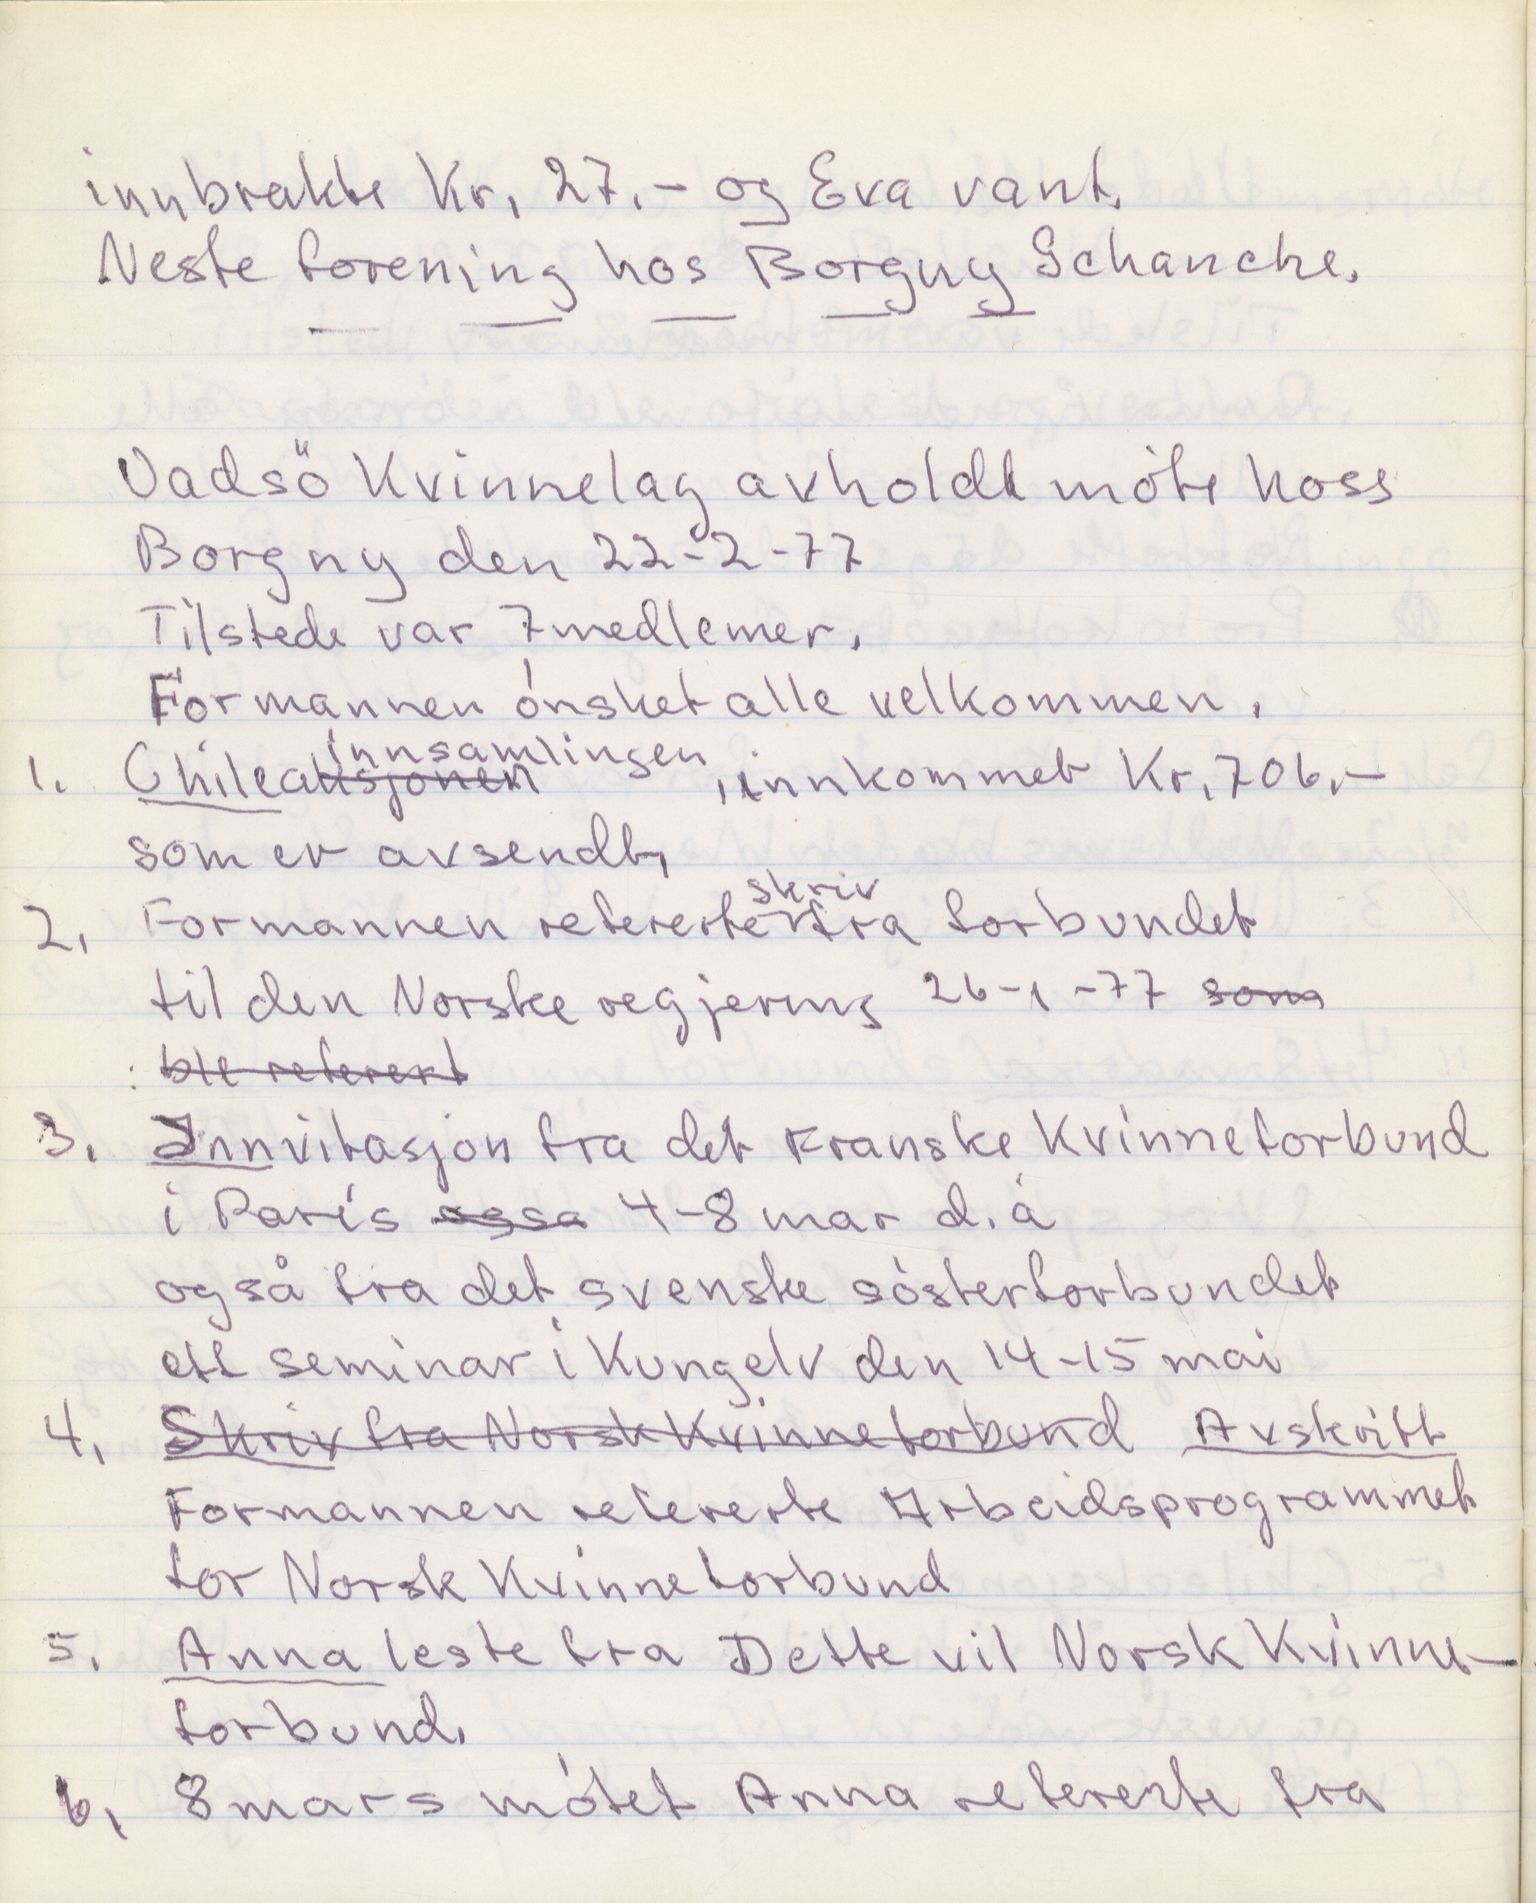 innbrakte Kr. 27.- og Eva vant.
Neste forening hos Borgny Schanche.
Vadsö Kvinnelag avholdt möte hoss
Borgny den 22-2-77
Tilstede var 7 medlemer.
Formannen ónsket alle velkommen.
innsamlingen
1. Chileaksjonen, innkommet Kr. 706.-
som er avsendt,
skriv
2. Formannen refererte fra forbundet
til den Norske regjering 26-1-77 som
ble referert
3. Innvitasjon fra det Franske Kvinneforbund
i Paris også 4-8 mar d.å
også fra det svenske sósterforbundet
ett seminar i Kungelv den 14-15 mai
4. Skriv fra Norsk Kvinneforbund Avskrift
Formannen refererte Arbeidsprogrammet
for Norsk Kvinneforbund
5. Anna leste fra Dette vil Norsk Kvinne-
forbund.
6. 8 mars mótet Anna refererte fra